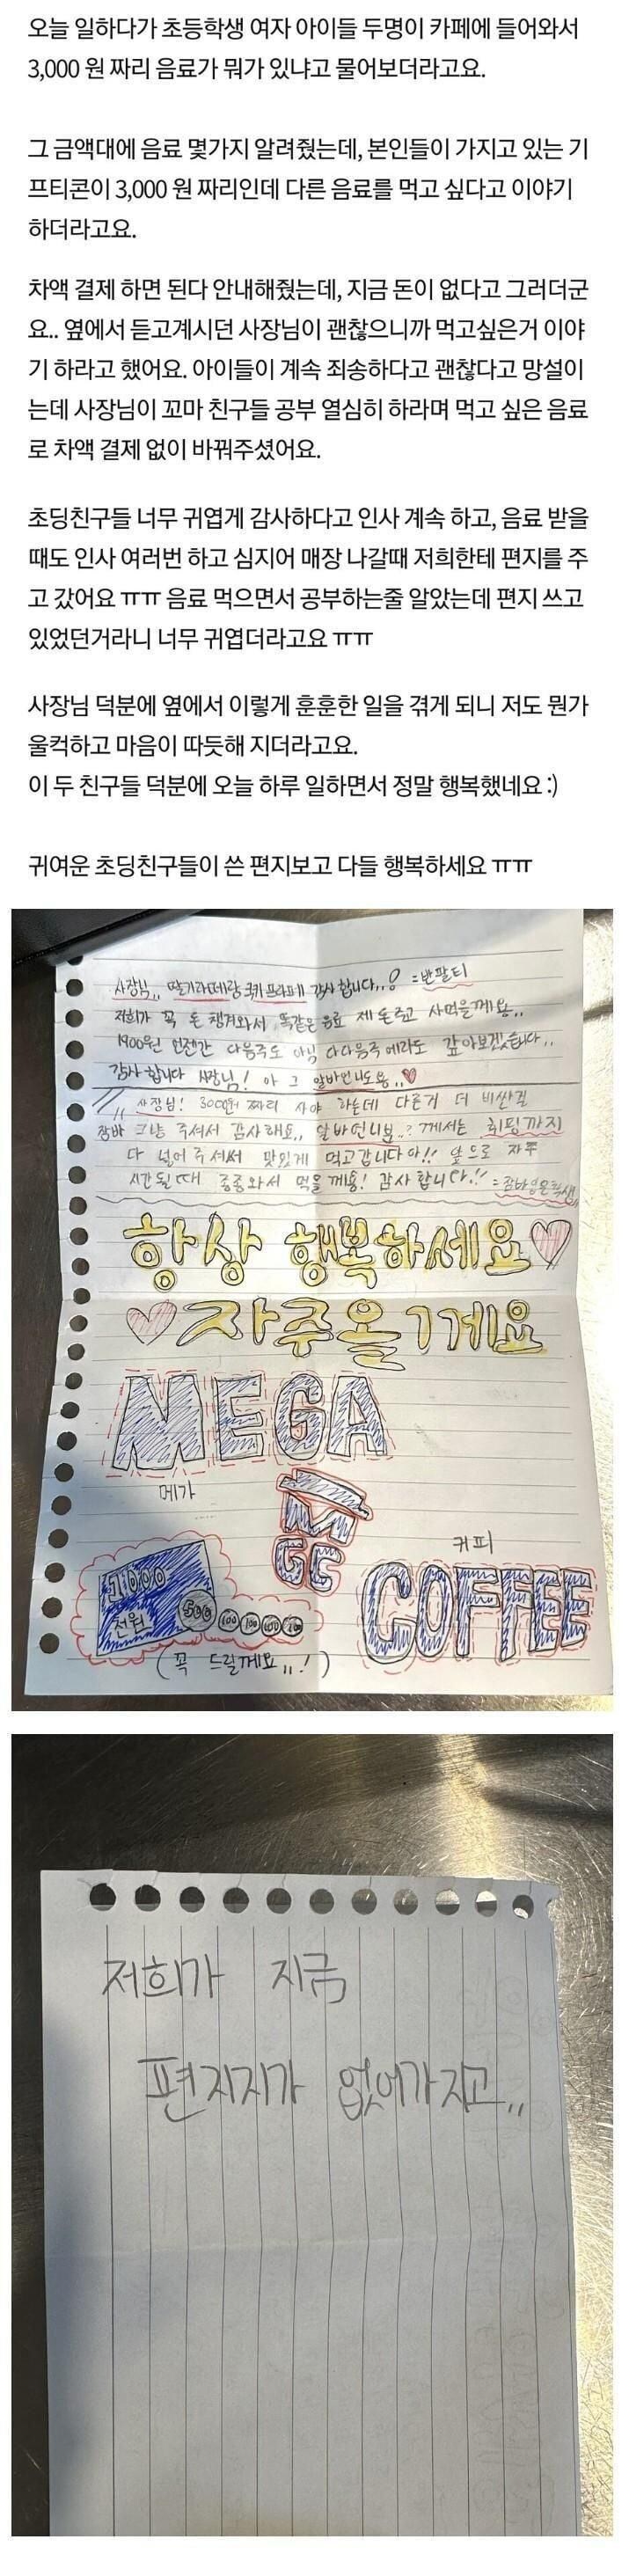 오늘 일하다가 초등학생 여자 아이들 두명이 카페에 들어와서
3,000 원 짜리 음료가 뭐가 있냐고 물어보더라고요.
그 금액대에 음료 몇가지 알려줬는데, 본인들이 가지고 있는 기
프티콘이 3,000 원 짜리인데 다른 음료를 먹고 싶다고 이야기
하더라고요.
차액 결제 하면 된다 안내해줬는데, 지금 돈이 없다고 그러더군
요.. 옆에서 듣고계시던 사장님이 괜찮으니까 먹고싶은거 이야
기 하라고 했어요. 아이들이 계속 죄송하다고 괜찮다고 망설이
는데 사장님이 꼬마 친구들 공부 열심히 하라며 먹고 싶은 음료
로 차액 결제 없이 바꿔주셨어요.
초딩친구들 너무 귀엽게 감사하다고 인사 계속 하고, 음료 받을
때도 인사 여러번 하고 심지어 매장 나갈때 저희한테 편지를 주
고 갔어요 ㅠㅠ 음료 먹으면서 공부하는줄 알았는데 편지 쓰고
있었던거라니 너무 귀엽더라고요 ㅠㅠ
사장님 덕분에 옆에서 이렇게 훈훈한 일을 겪게 되니 저도 뭔가
울컥하고 마음이 따듯해 지더라고요.
이 두 친구들 덕분에 오늘 하루 일하면서 정말 행복했네요 :)
귀여운 초딩친구들이 쓴 편지보고 다들 행복하세요 ㅠㅠ
사장님,, 딸기라떼랑 쿠키프라페 감사합니다..! =반팔티
저희가 꼭 돈 챙겨와서 똑같은 음료 제 돈주고 사먹을께요..
1900원 언젠간 다음주도 아님 다다음주 에라도 갚아보겠습니다..
감사합니다 사장님! 아 그 알바언니도용..♥
사장님! 3000원 짜리 사야 하는데 다른거 더 비싼걸
그냥 주셔서 감사해요.. 알바언니분..? 께서는 휘핑까지
다 넣어주셔서 맛있게 먹고갑니다아!! 앞으로 자주
시간될때 종종와서 먹을께용! 감사합니다!!
항상 행복하세요♡
♡자주올게요
MEGA
메가
MGC
커피
COFFEE
1000
천원
500 100 100 100 100
(꼭 드릴께요,,!)
저희가 지금
편지지가 없어가지고,,